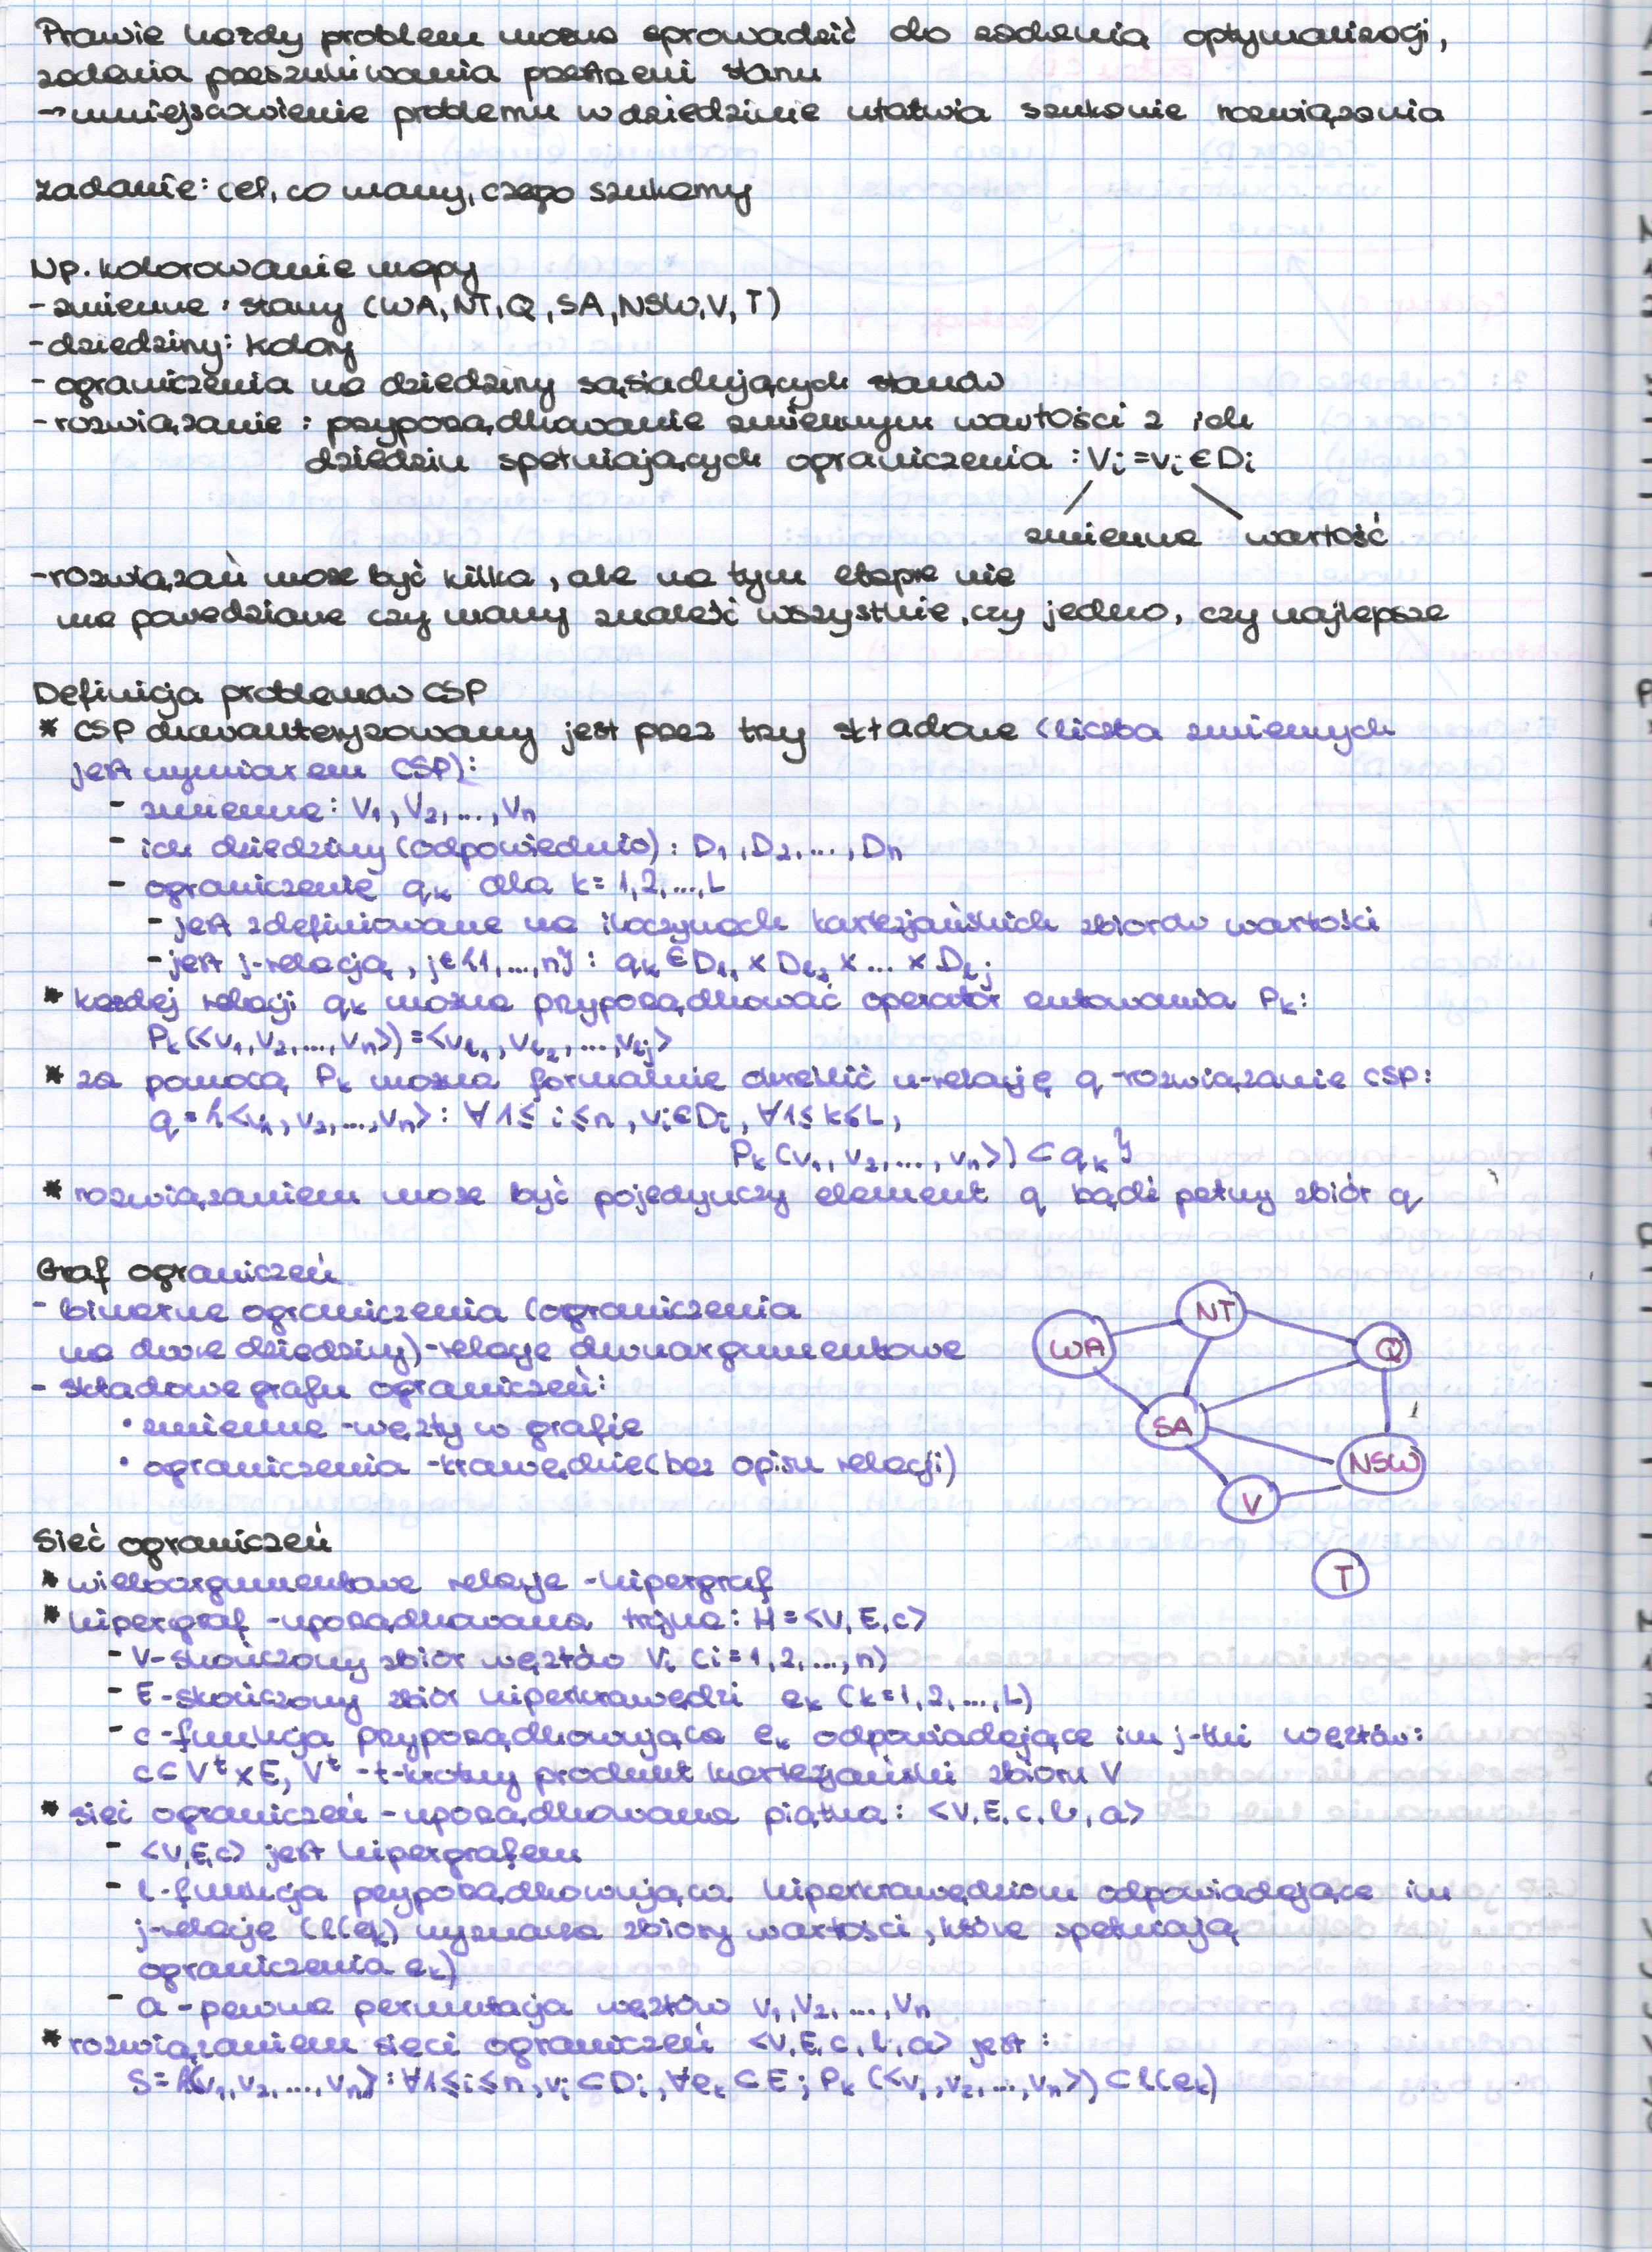 Prawie każdy problem można sprowadzić do zadania optymalizacji,
zadania przeszukiwania przestrzeni stanu
→ umiejscowienie problemu w dziedzinie ułatwia szukanie rozwiązania
zadanie: cel, co mamy, czego szukamy
Np. kolorowanie mapy
- zmienne: stany (WA, NT, Q, SA, NSW, V, T)
- dziedziny: kolory
- ograniczenia na dziedziny sąsiadujących stanów
- rozwiązanie: przyporządkowanie zmiennym wartości z ich
dziedzin spełniających ograniczenia: Vi = vi ∈ Di
zmienna wartość
- rozwiązań może być kilka, ale na tym etapie nie
ma powiedziane czy mamy znaleźć wszystkie, czy jedno, czy najlepsze
Definicja problemów CSP
* CSP charakteryzowany jest przez trzy składowe (liczba zmiennych
jest wymiarem CSP):
- zmienne: V1, V2, ..., Vn
- ich dziedziny (odpowiednio): D1, D2, ..., Dn
- ograniczenie qk dla k = 1, 2, ..., L
- jest zdefiniowane na iloczynach kartezjańskich zbiorów wartości
- jest j-relacją, j ∈ {1, ..., n}: qk ∈ Dl1 × Dl2 × ... × Dlj
* każdej relacji qk można przyporządkować operator rzutowania Pk:
Pk(<v1, v2, ..., vn>) = <vl1, vl2, ..., vlj>
* za pomocą Pk można formalnie określić n-relację q - rozwiązanie CSP:
q = {<v1, v2, ..., vn>: ∀ 1 ≤ i ≤ n, vi ∈ Di, ∀ 1 ≤ k ≤ L,
Pk(v1, v2, ..., vn>) ⊂ qk}
* rozwiązaniem może być pojedynczy element q bądź pełny zbiór q
Graf ograniczeń
- binarne ograniczenia (ograniczenia
na dwie dziedziny) - relacje dwuargumentowe
- składowe grafu ograniczeń:
• zmienne - węzły w grafie
• ograniczenia - krawędzie (bez opisu relacji)
NT
WA
Q
SA
NSW
V
T
Sieć ograniczeń
* wieloargumentowe relacje - hipergraf
* hipergraf - uporządkowana trójka: H = <V, E, c>
- V - skończony zbiór węzłów Vi (i = 1, 2, ..., n)
- E - skończony zbiór hiperkrawędzi ek (k = 1, 2, ..., L)
- c - funkcja przyporządkowująca ek odpowiadające im j-tki węzłów:
c ⊂ V^t × E, V^t - t-krotny produkt kartezjański zbioru V
* sieć ograniczeń - uporządkowana piątka: <V, E, c, l, a>
- <V, E, c> jest hipergrafem
- l - funkcja przyporządkowująca hiperkrawędziom odpowiadające im
j-relacje (l(ek) wyznacza zbiory wartości, które spełniają
ograniczenia ek)
- a - pewna permutacja węzłów V1, V2, ..., Vn
* rozwiązaniem sieci ograniczeń <V, E, c, l, a> jest:
S = {<v1, v2, ..., vn>: ∀ 1 ≤ i ≤ n, vi ⊂ Di, ∀ ek ⊂ E; Pk(<v1, v2, ..., vn>) ⊂ l(ek)